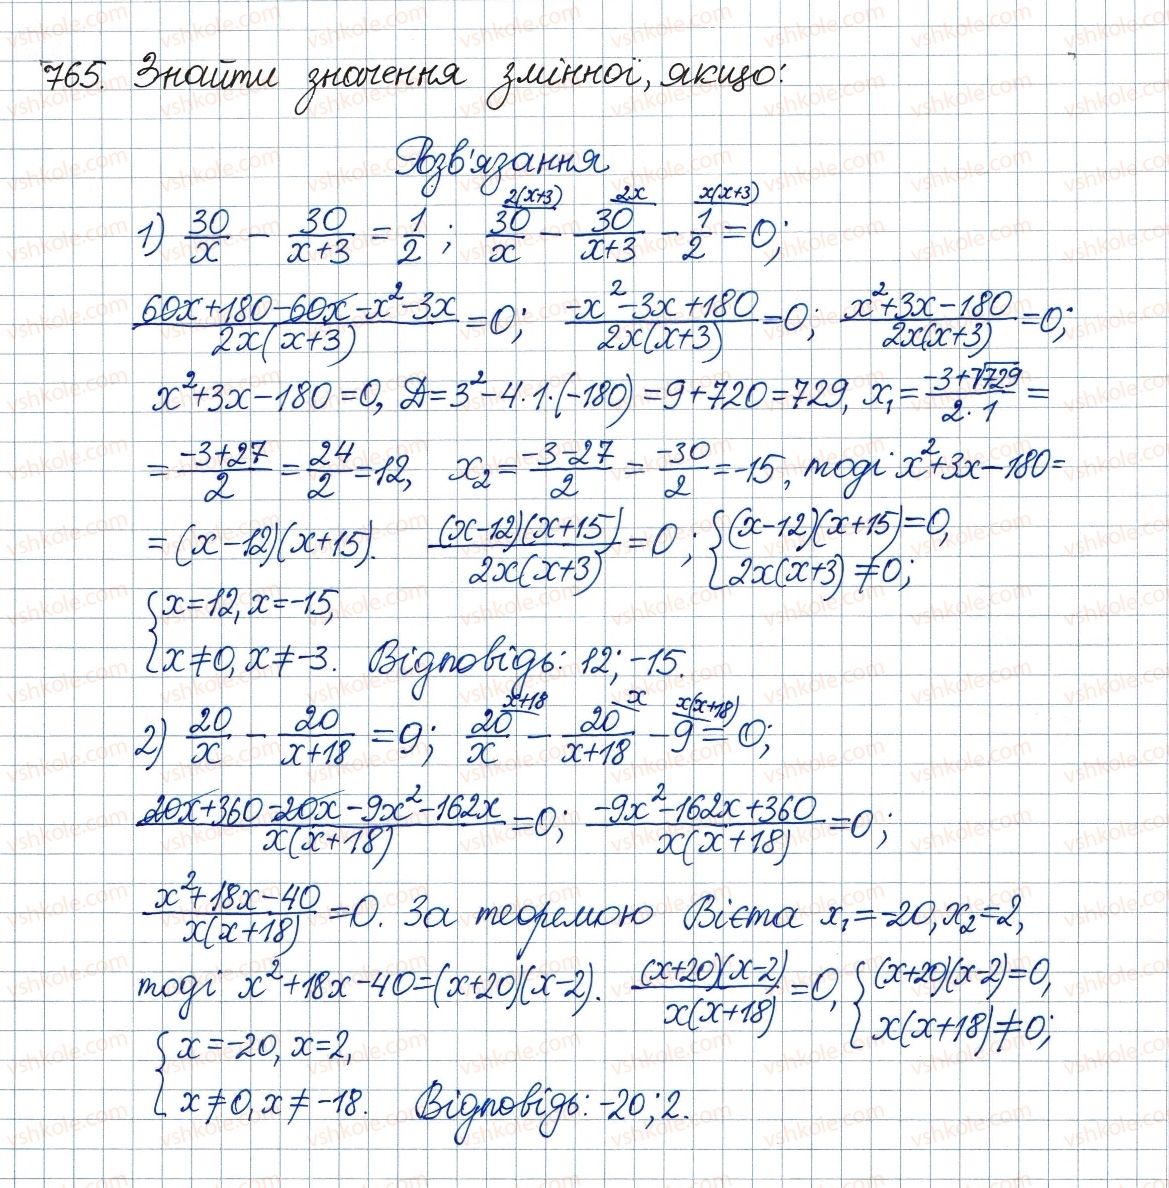 765. Знайти значення змінної, якщо:
Розв'язання
1) 30/x - 30/(x+3) = 1/2; 30/x^{2(x+3)} - 30/(x+3)^{2x} - 1/2^{x(x+3)} = 0;
(60x+180-60x-x²-3x)/(2x(x+3)) = 0; (-x²-3x+180)/(2x(x+3)) = 0; (x²+3x-180)/(2x(x+3)) = 0;
x²+3x-180=0, Д=3²-4·1·(-180)=9+720=729, x₁=(-3+√729)/(2·1)=
=(-3+27)/2=24/2=12, x₂=(-3-27)/2=-30/2=-15, тоді x²+3x-180=
=(x-12)(x+15). ((x-12)(x+15))/(2x(x+3))=0; {(x-12)(x+15)=0, 2x(x+3)≠0;
{x=12, x=-15,
x≠0, x≠-3. Відповідь: 12; -15.
2) 20/x - 20/(x+18) = 9; 20/x^{x+18} - 20/(x+18)^{x} - 9^{x(x+18)} = 0;
(20x+360-20x-9x²-162x)/(x(x+18))=0; (-9x²-162x+360)/(x(x+18))=0;
(x²+18x-40)/(x(x+18))=0. За теоремою Вієта x₁=-20, x₂=2,
тоді x²+18x-40=(x+20)(x-2). ((x+20)(x-2))/(x(x+18))=0, {(x+20)(x-2)=0, x(x+18)≠0;
{x=-20, x=2,
x≠0, x≠-18. Відповідь: -20; 2.